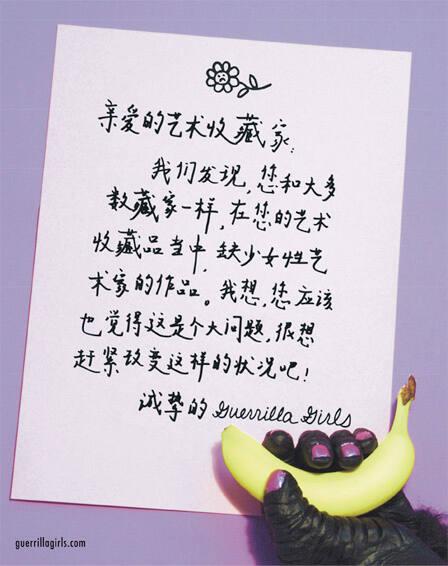 亲爱的艺术收藏家:
我们发现,您和大多
数藏家一样,在您的艺术
收藏品当中,缺少女性艺
术家的作品。我想,您应该
也觉得这是个大问题,很想
赶紧改变这样的状况吧!
诚挚的 Guerrilla Girls
guerrillagirls.com